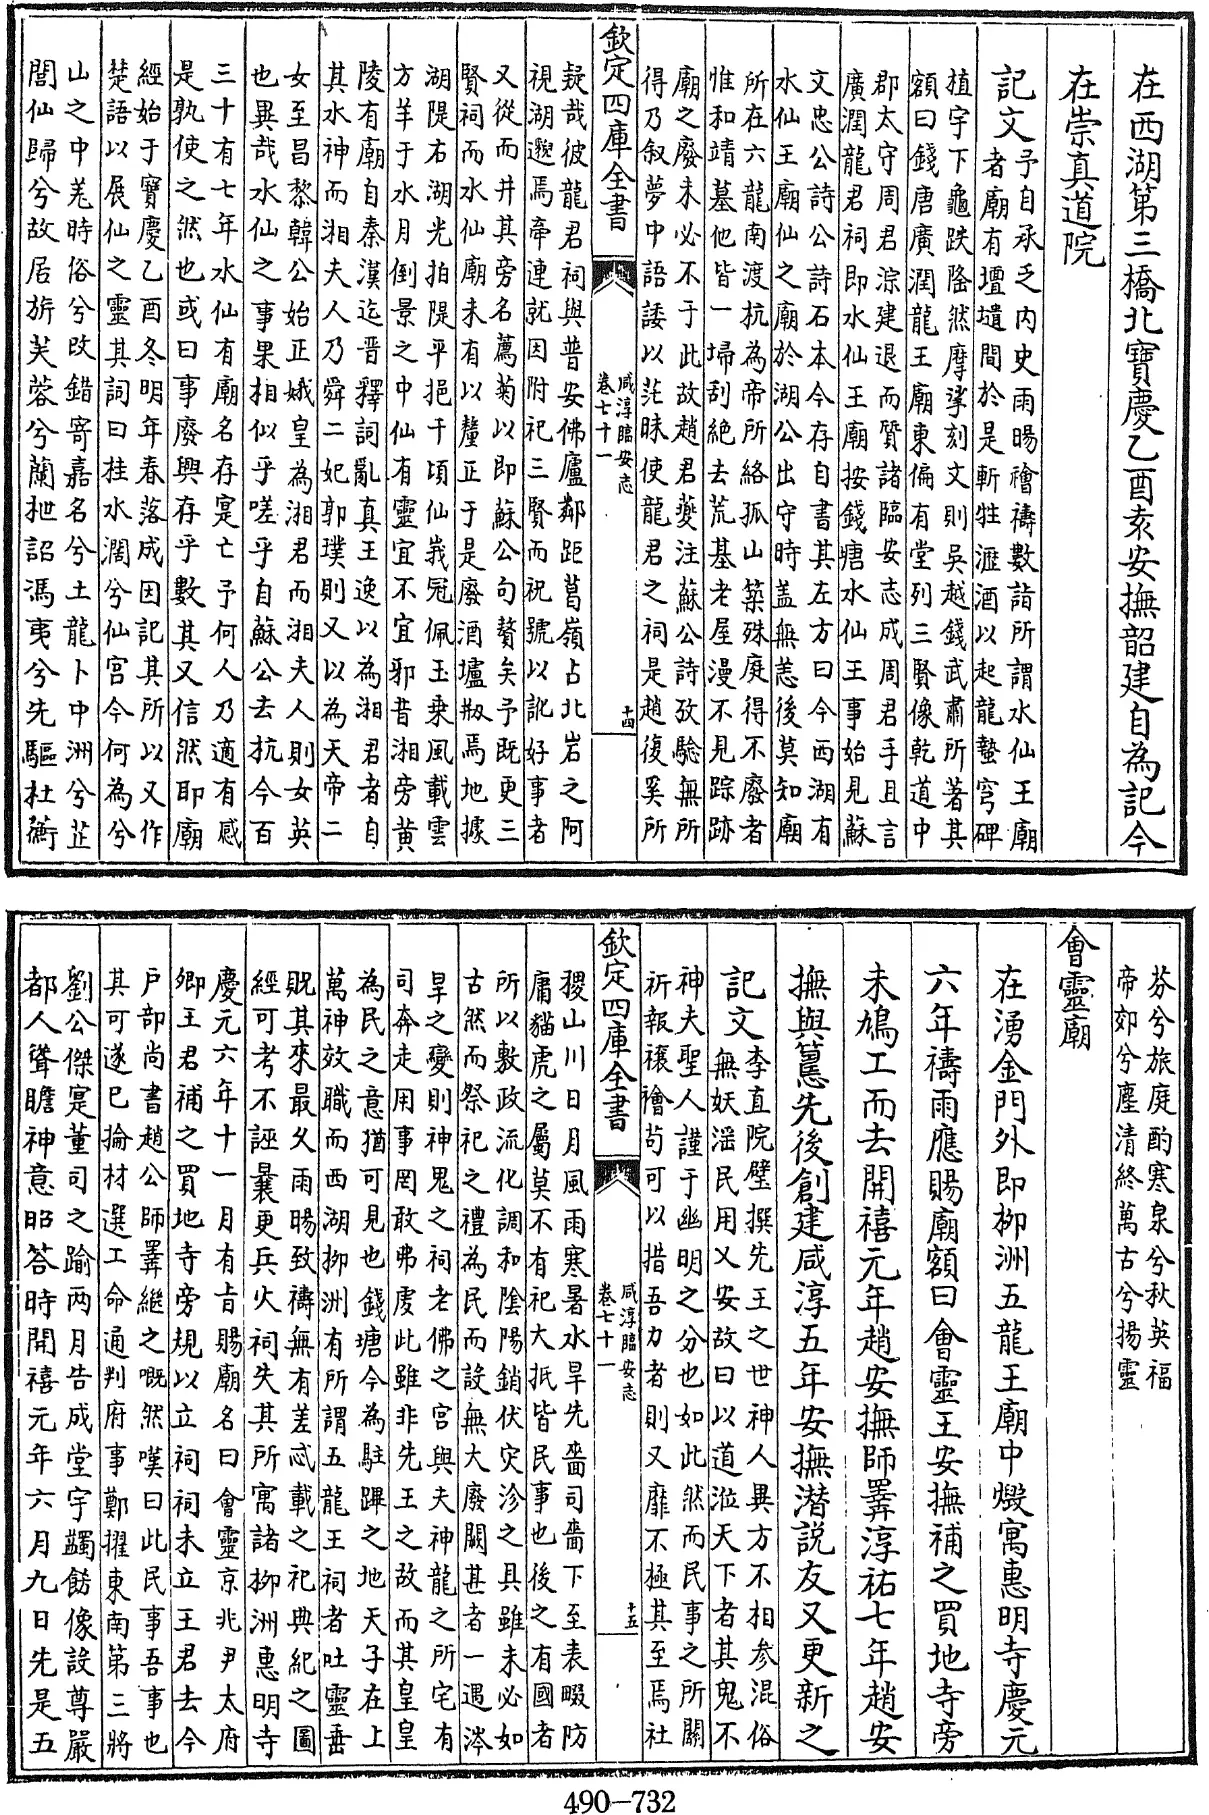 在西湖第三橋北寶慶乙酉袁安撫韶建自為記今
在崇真道院
記文予自承乏内史雨暘禬禱數詣所謂水仙王廟
者廟有壇壝間於是斬牲灑酒以起龍蟄穹碑
植宇下龜趺隆然摩挲刻文則吳越錢武肅所著其
額曰錢唐廣潤龍王廟東偏有堂列三賢像乾道中
郡太守周君淙建退而質諸臨安志成周君手且言
廣潤龍君祠即水仙王廟按錢塘水仙王事始見蘇
文忠公詩公詩石本今存自書其左方曰今西湖有
水仙王廟仙之廟於湖公出守時盖無恙後莫知廟
所在六龍南渡杭為帝所絡孤山築殊庭得不廢者
惟和靖墓他皆一埽刮絶去荒基老屋漫不見踪跡
廟之廢未必不于此故趙君夔注蘇公詩攷驗無所
得乃叙夢中語諉以茫昧使龍君之祠是趙復奚所
欽定四庫全書
咸淳臨安志
卷七十一
十四
疑哉彼龍君祠與普安佛廬鄰距葛嶺占北岩之阿
視湖邈焉帝連就因附祀三賢而祝號以訛好事者
又從而井其旁名薦菊以即蘇公句贅矣予既更三
賢祠而水仙廟未有以釐正于是廢酒壚剏焉地據
湖隄右湖光拍隄平挹千頃仙峩冠佩玉乗風載雲
方羊于水月倒景之中仙有靈宜不宜邪昔湘旁黄
陵有廟自秦漢迄晉釋詞亂真王逸以為湘君者自
其水神而湘夫人乃舜二妃郭璞則又以為天帝二
女至昌黎韓公始正娥皇為湘君而湘夫人則女英
也異哉水仙之事果相似乎嗟乎自蘇公去抗今百
三十有七年水仙有廟名存寔亡予何人乃適有感
是孰使之然也或曰事廢興存乎數其又信然耶廟
經始于寶慶乙酉冬明年春落成因記其所以又作
楚語以展仙之靈其詞曰桂水濶兮仙宫今何為兮
山之中羌時俗兮改錯寄嘉名兮土龍卜中洲兮芷
誾仙歸兮故居旂芙蓉兮蘭抴詔馮夷兮先驅杜蘅
芬兮旅庭酌寒泉兮秋英福
帝郊兮塵清終萬古兮揚靈
會靈廟
在湧金門外即柳洲五龍王廟中燬寓惠明寺慶元
六年禱雨應賜廟額曰會靈王安撫補之買地寺旁
未鳩工而去開禧元年趙安撫師𢍰淳祐七年趙安
撫與𥲅先後創建咸淳五年安撫潛説友又更新之
記文李直院壁撰先王之世神人異方不相参混俗
無妖滛民用乂安故曰以道涖天下者其鬼不
神夫聖人謹于幽明之分也如此然而民事之所關
祈報禳禬苟可以措吾力者則又靡不極其至焉社
欽定四庫全書
咸淳臨安志
卷七十一
十五
稷山川日月風雨寒暑水旱先嗇司嗇下至表畷防
庸貓虎之屬莫不有祀大抵皆民事也後之有國者
所以敷政流化調和陰陽銷伏灾沴之具雖未必如
古然而祭祀之禮為民而設無大廢闕甚者一遇涔
旱之變則神鬼之祠老佛之宫與夫神龍之所宅有
司奔走用事罔敢弗虔此雖非先王之故而其皇皇
為民之意猶可見也錢塘今為駐蹕之地天子在上
萬神效職而西湖柳洲有所謂五龍王祠者吐靈垂
貺其來最久雨暘致禱無有差忒載之祀典紀之圖
經可考不誣曩更兵火祠失其所寓諸柳洲惠明寺
慶元六年十一月有㫖賜廟名曰會靈京兆尹太府
卿王君補之買地寺旁規以立祠祠未立王君去今
户部尚書趙公師𢍰繼之嘅然嘆曰此民事吾事也
其可遂已掄材選工命通判府事鄭擢東南第三將
劉公傑寔董司之踰兩月告成堂宇蠲飭像設尊嚴
都人聳瞻神意昭答時開禧元年六月九日先是五
490—732